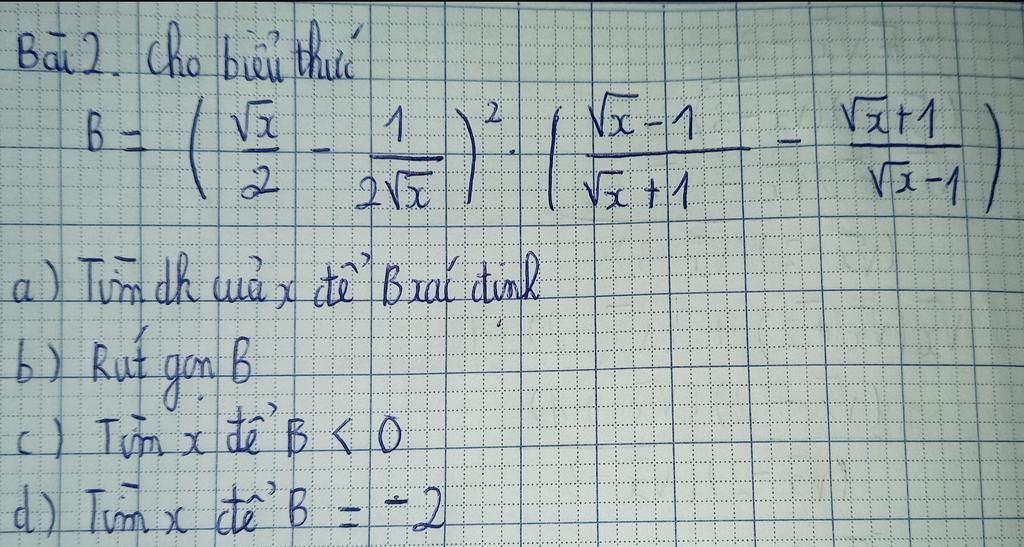 Bài 2. Cho biểu thức
B = ( √x/2 - 1/(2√x) )² . ( (√x - 1)/(√x + 1) - (√x + 1)/(√x - 1) )
a) Tìm đk của x để B xác định
b) Rút gọn B
c) Tìm x để B < 0
d) Tìm x để B = -2